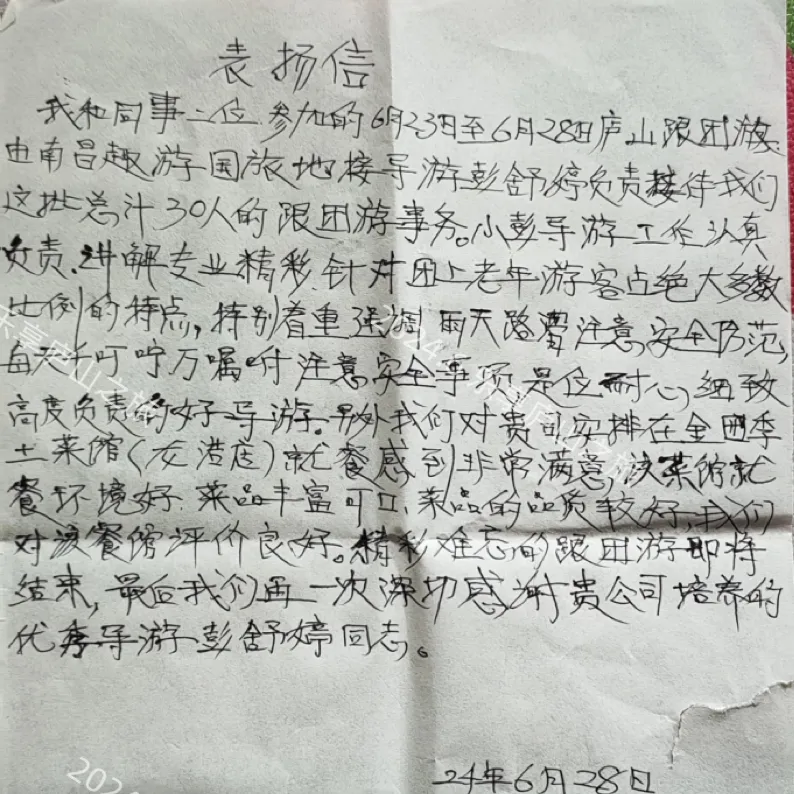 表扬信
我和同事二位参加的6月23日至6月28日庐山跟团游.
由南昌趣游国旅地接导游彭舒婷负责接待我们
这批总计30人的跟团游事务。小彭导游工作认真
负责.讲解专业精彩.针对团上老年游客占绝大多数
比例的特点,特别着重强调雨天路滑注意安全防范,
每天千叮咛万嘱咐注意安全事项是位耐心,细致
高度负责的好导游。另外我们对贵司安排在全团季
土菜馆(友谊店)就餐感到非常满意,该菜馆就
餐环境好.菜品丰富可口.菜品的品质较好,我们
对该餐馆评价良好。精彩难忘的跟团游即将
结束,最后我们再一次深切感谢贵公司培养的
优秀导游彭舒婷同志。
24年6月28日